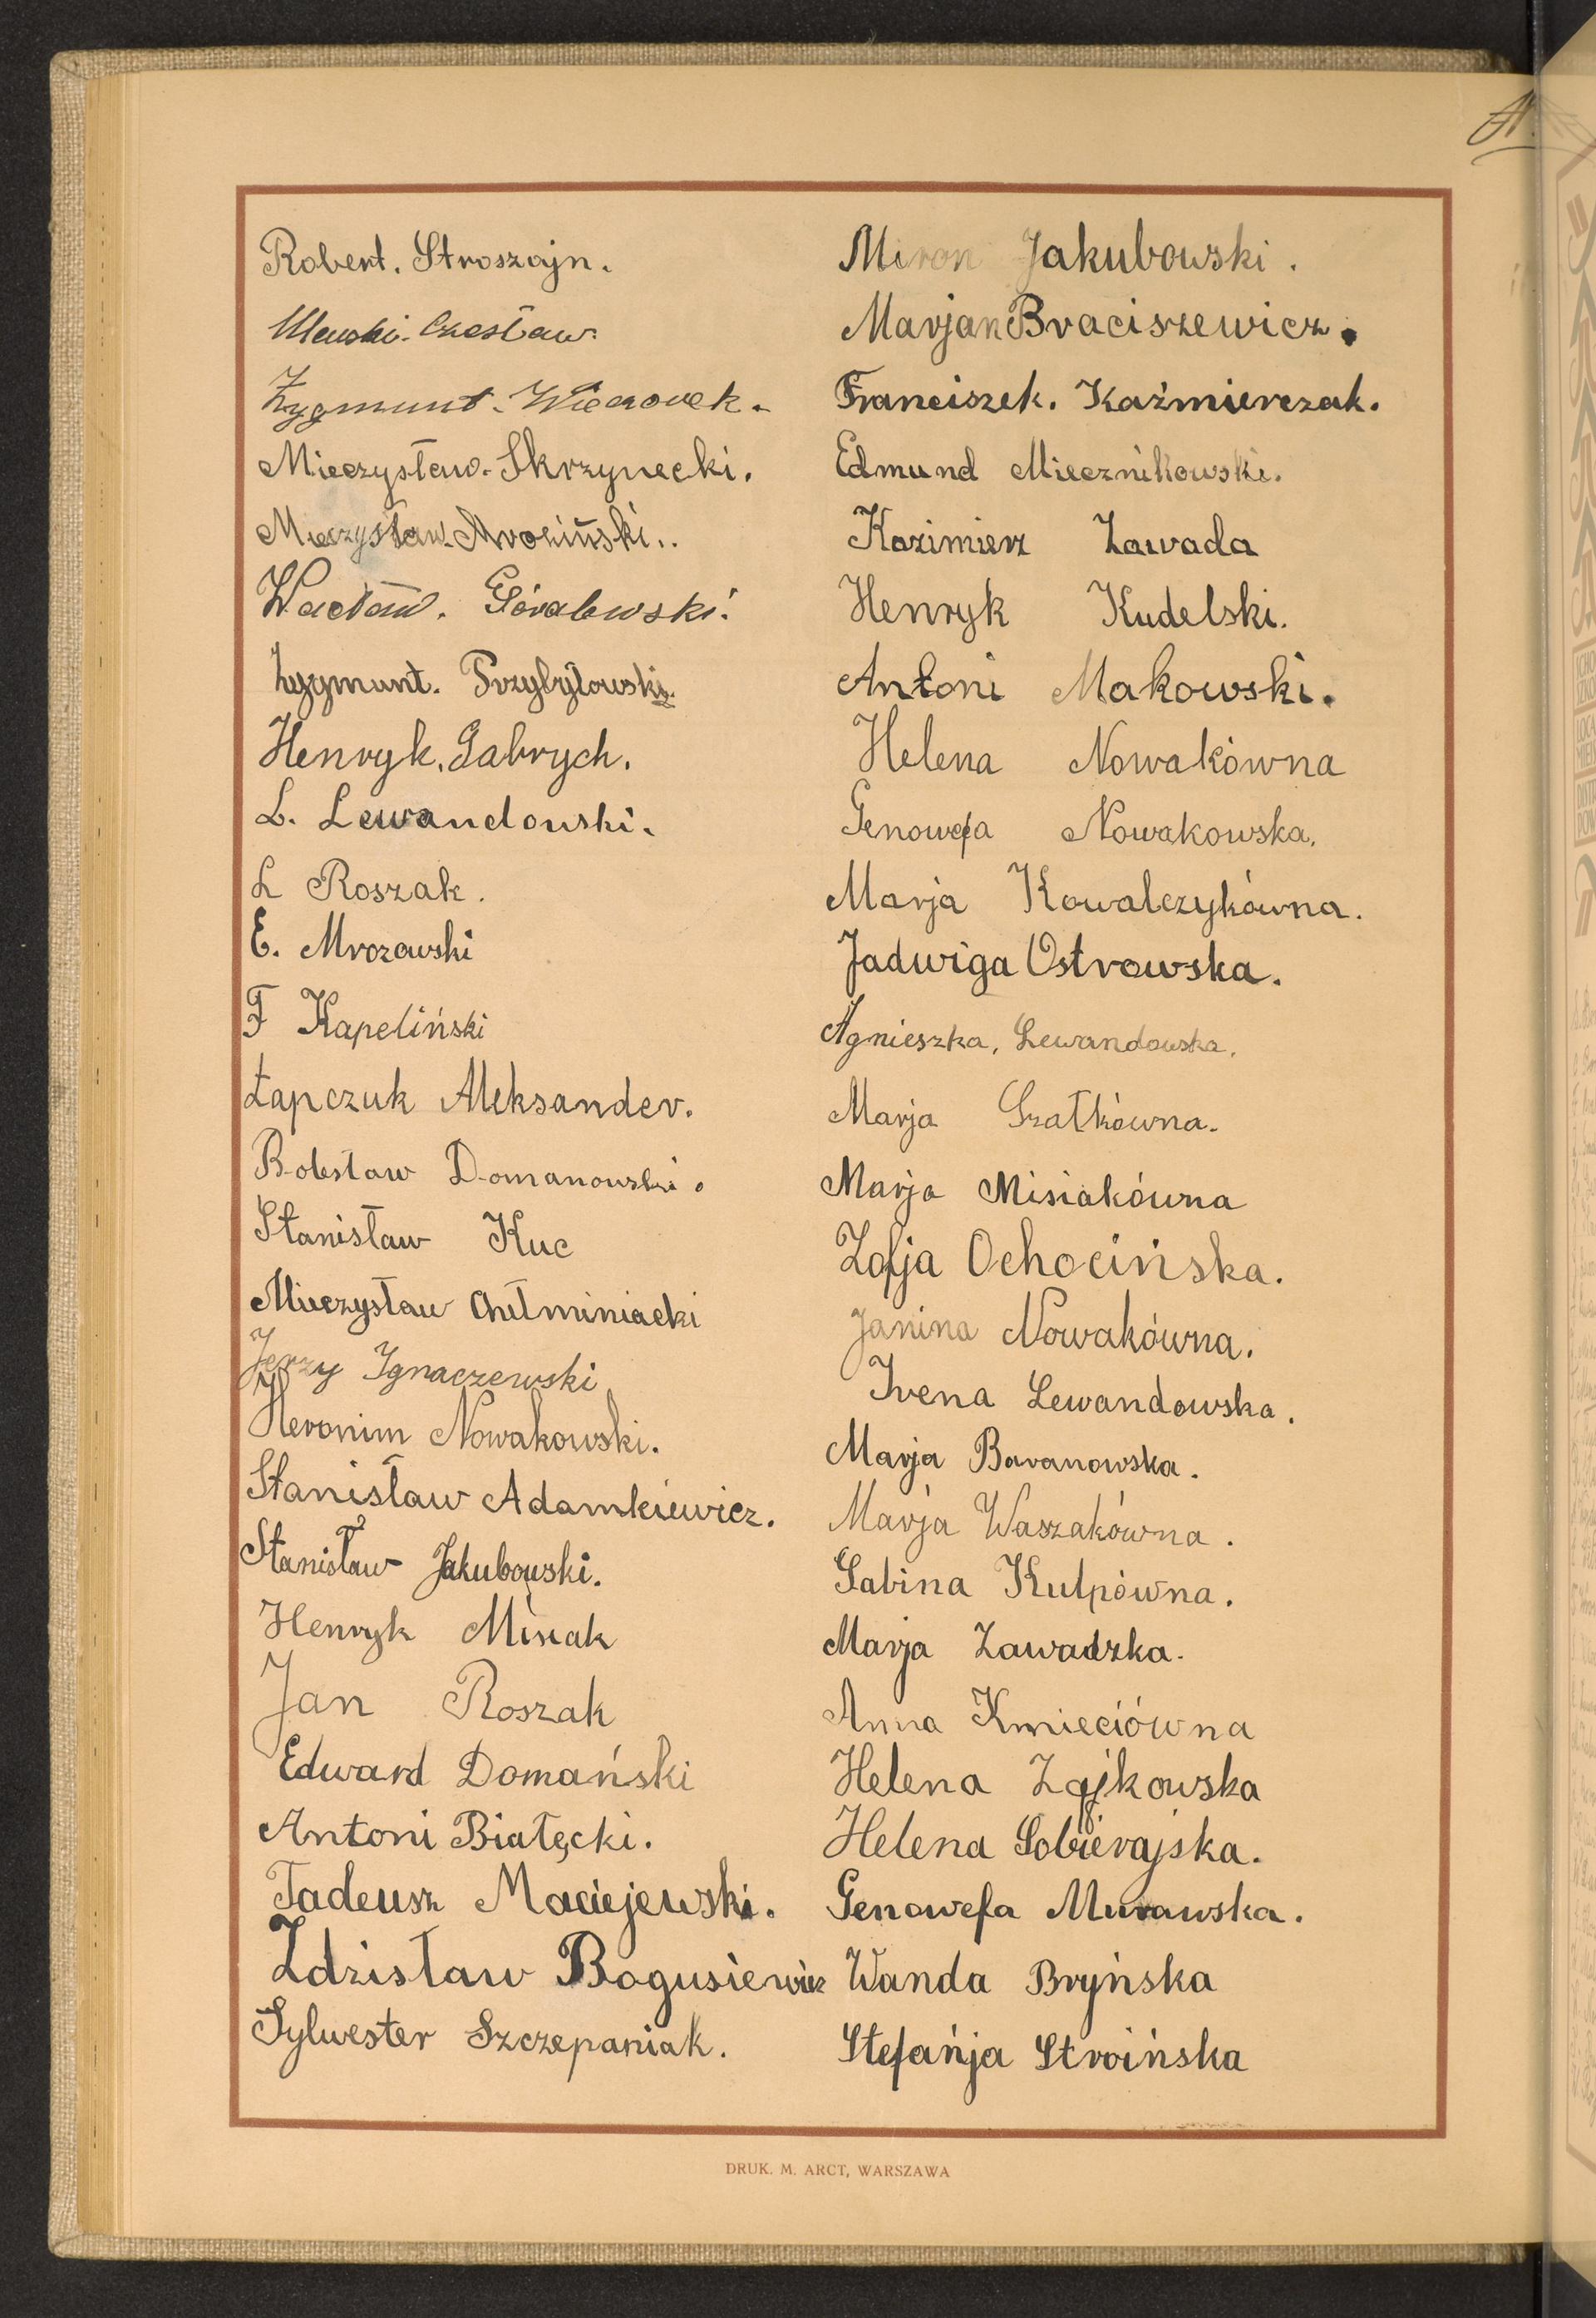 Robert. Stroszajn.
Ulewski. Czesław.
Zygmunt. Wieczorek.
Mieczysław. Skrzynecki.
Mieczysław. Mroziński..
Wacław. Góralewski.
Zygmunt. Przybyłowski.
Henryk. Gabrych.
L. Lewandowski.
L Roszak.
E. Mrozowski
F Kapeliński
Łapczuk Aleksander.
Bolesław Domanowski.
Stanisław Kuc
Mieczysław Chełminiacki
Jerzy Ignaczewski
Heronim Nowakowski.
Stanisław Adamkiewicz.
Stanisław Jakubowski.
Henryk Misiak
Jan Roszak
Edward Domański
Antoni Białęcki.
Tadeusz Maciejewski.
Zdzisław Bogusiewicz
Sylwester Szczepaniak.
Miron Jakubowski.
Marjan Braciszewicz.
Franciszek. Kaźmierczak.
Edmund Miecznikowski.
Kazimierz Zawada
Henryk Kudelski.
Antoni Makowski.
Helena Nowakówna
Genowefa Nowakowska.
Marja Kowalczykówna.
Jadwiga Ostrowska.
Agnieszka, Lewandowska.
Marja Szałkówna.
Marja Misiakówna
Zofja Ochocińska.
Janina Nowakówna.
Irena Lewandowska.
Marja Baranowska.
Marja Waszakówna.
Sabina Kulpówna.
Marja Zawadzka.
Anna Kmieciówna
Helena Zajkowska
Helena Sobierajska.
Genowefa Murawska.
Wanda Bryńska
Stefańja Stroińska
DRUK. M. ARCT, WARSZAWA